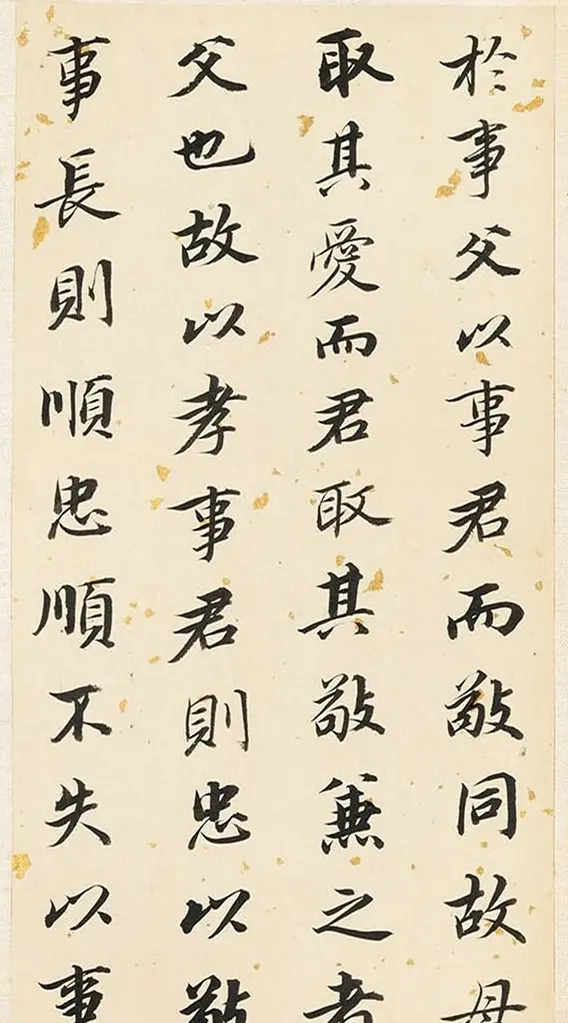 於事父以事君而敬同故母
取其愛而君取其敬兼之者
父也故以孝事君則忠以敬
事長則順忠順不失以事